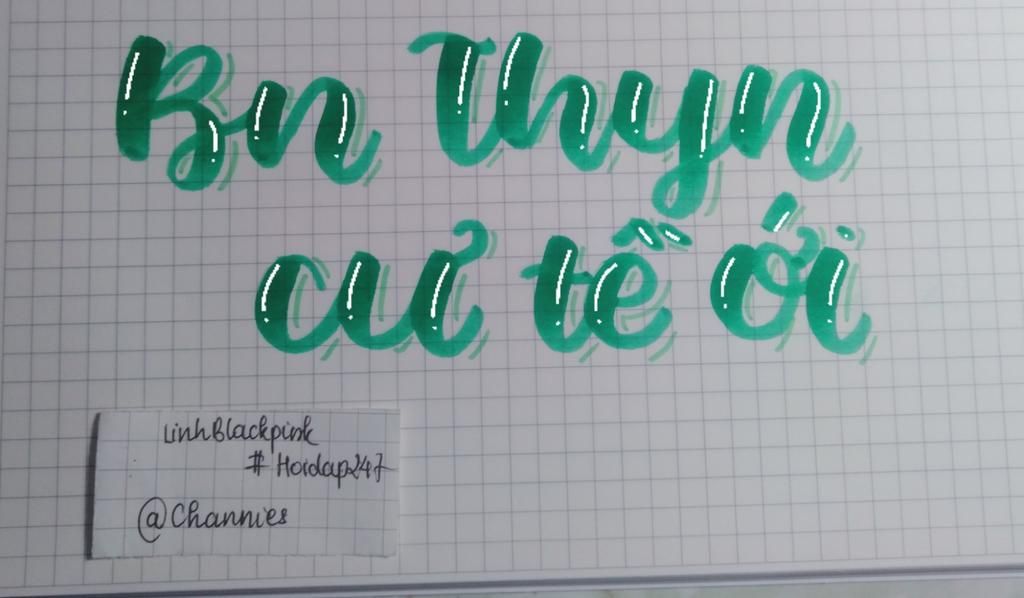 Bn Thyn
cư tề ới
LinhBlackpink
# Hoidap247
@Channies